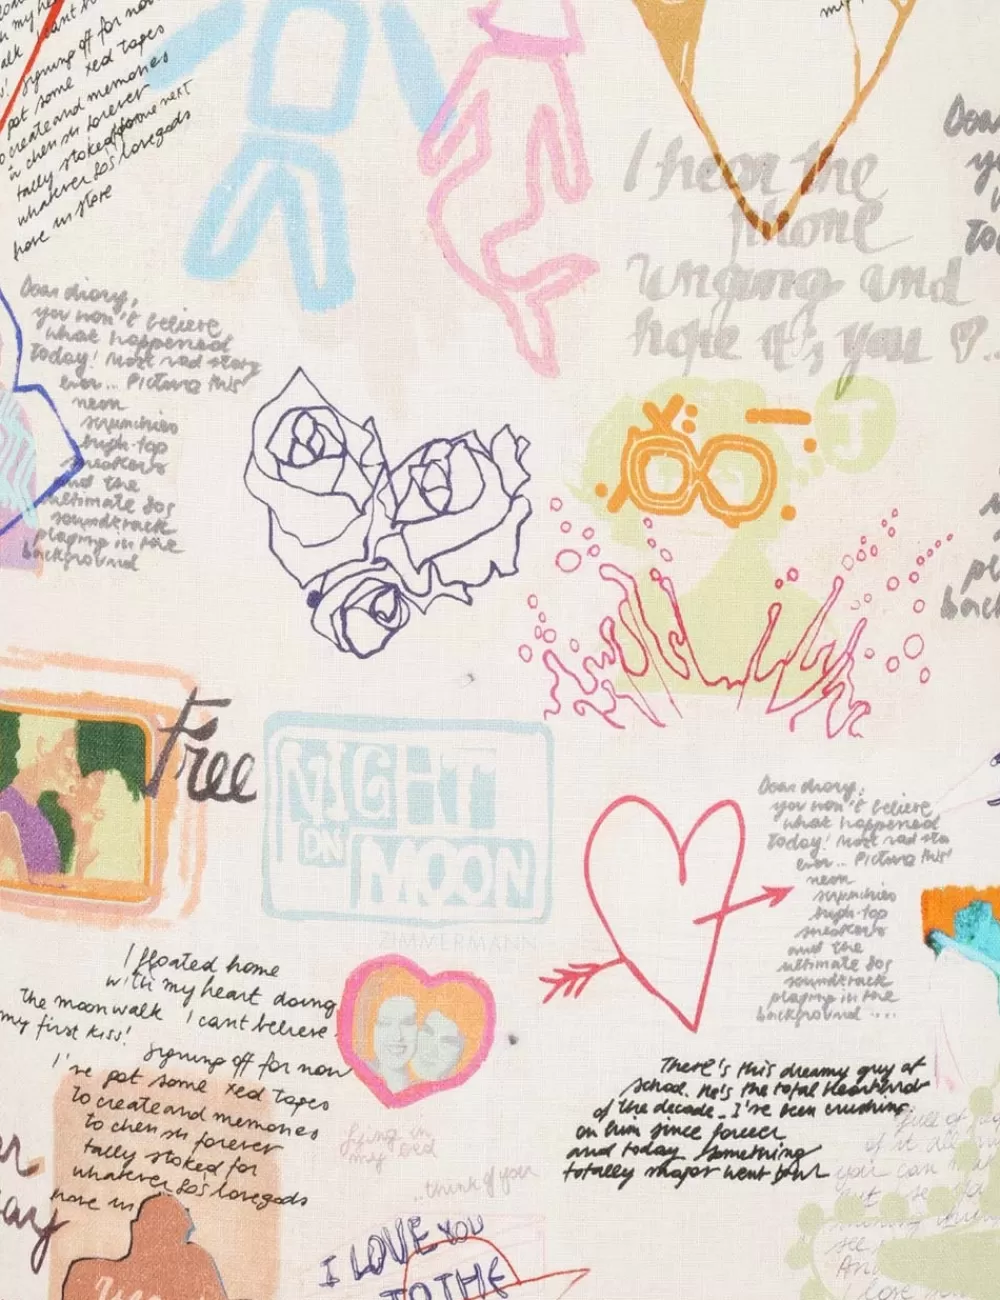 signing off for now
got some red tapes
to create and memories
to cherish forever
tally stoked for the next
whatever 80s love gods
have in store
I hear the
phone
ringing and
hope it's you ♡..
Dear diary,
you won't believe
what happened
today! Most rad story
ever... Picture this
neon
scrunchies
high-top
sneakers
and the
ultimate 80s
soundtrack
playing in the
background
J
Free
NIGHT
ON
MOON
ZIMMERMANN
Dear diary,
you won't believe
what happened
today! Most rad sto
ever... Picture this
neon
scrunchies
high-top
sneakers
and the
ultimate 80s
soundtrack
playing in the
background ....
I floated home
with my heart doing
the moonwalk I cant believe
my first kiss!
signing off for now
I've got some red tapes
to create and memories
to cherish forever
tally stoked for
whatever 80s love gods
have in
There's this dreamy guy at
school. He's the total heartthrob
of the decade. I've been crushing
on him since forever
and today something
totally major went down
lying in
my bed
...think of you
I LOVE YOU
TO THE